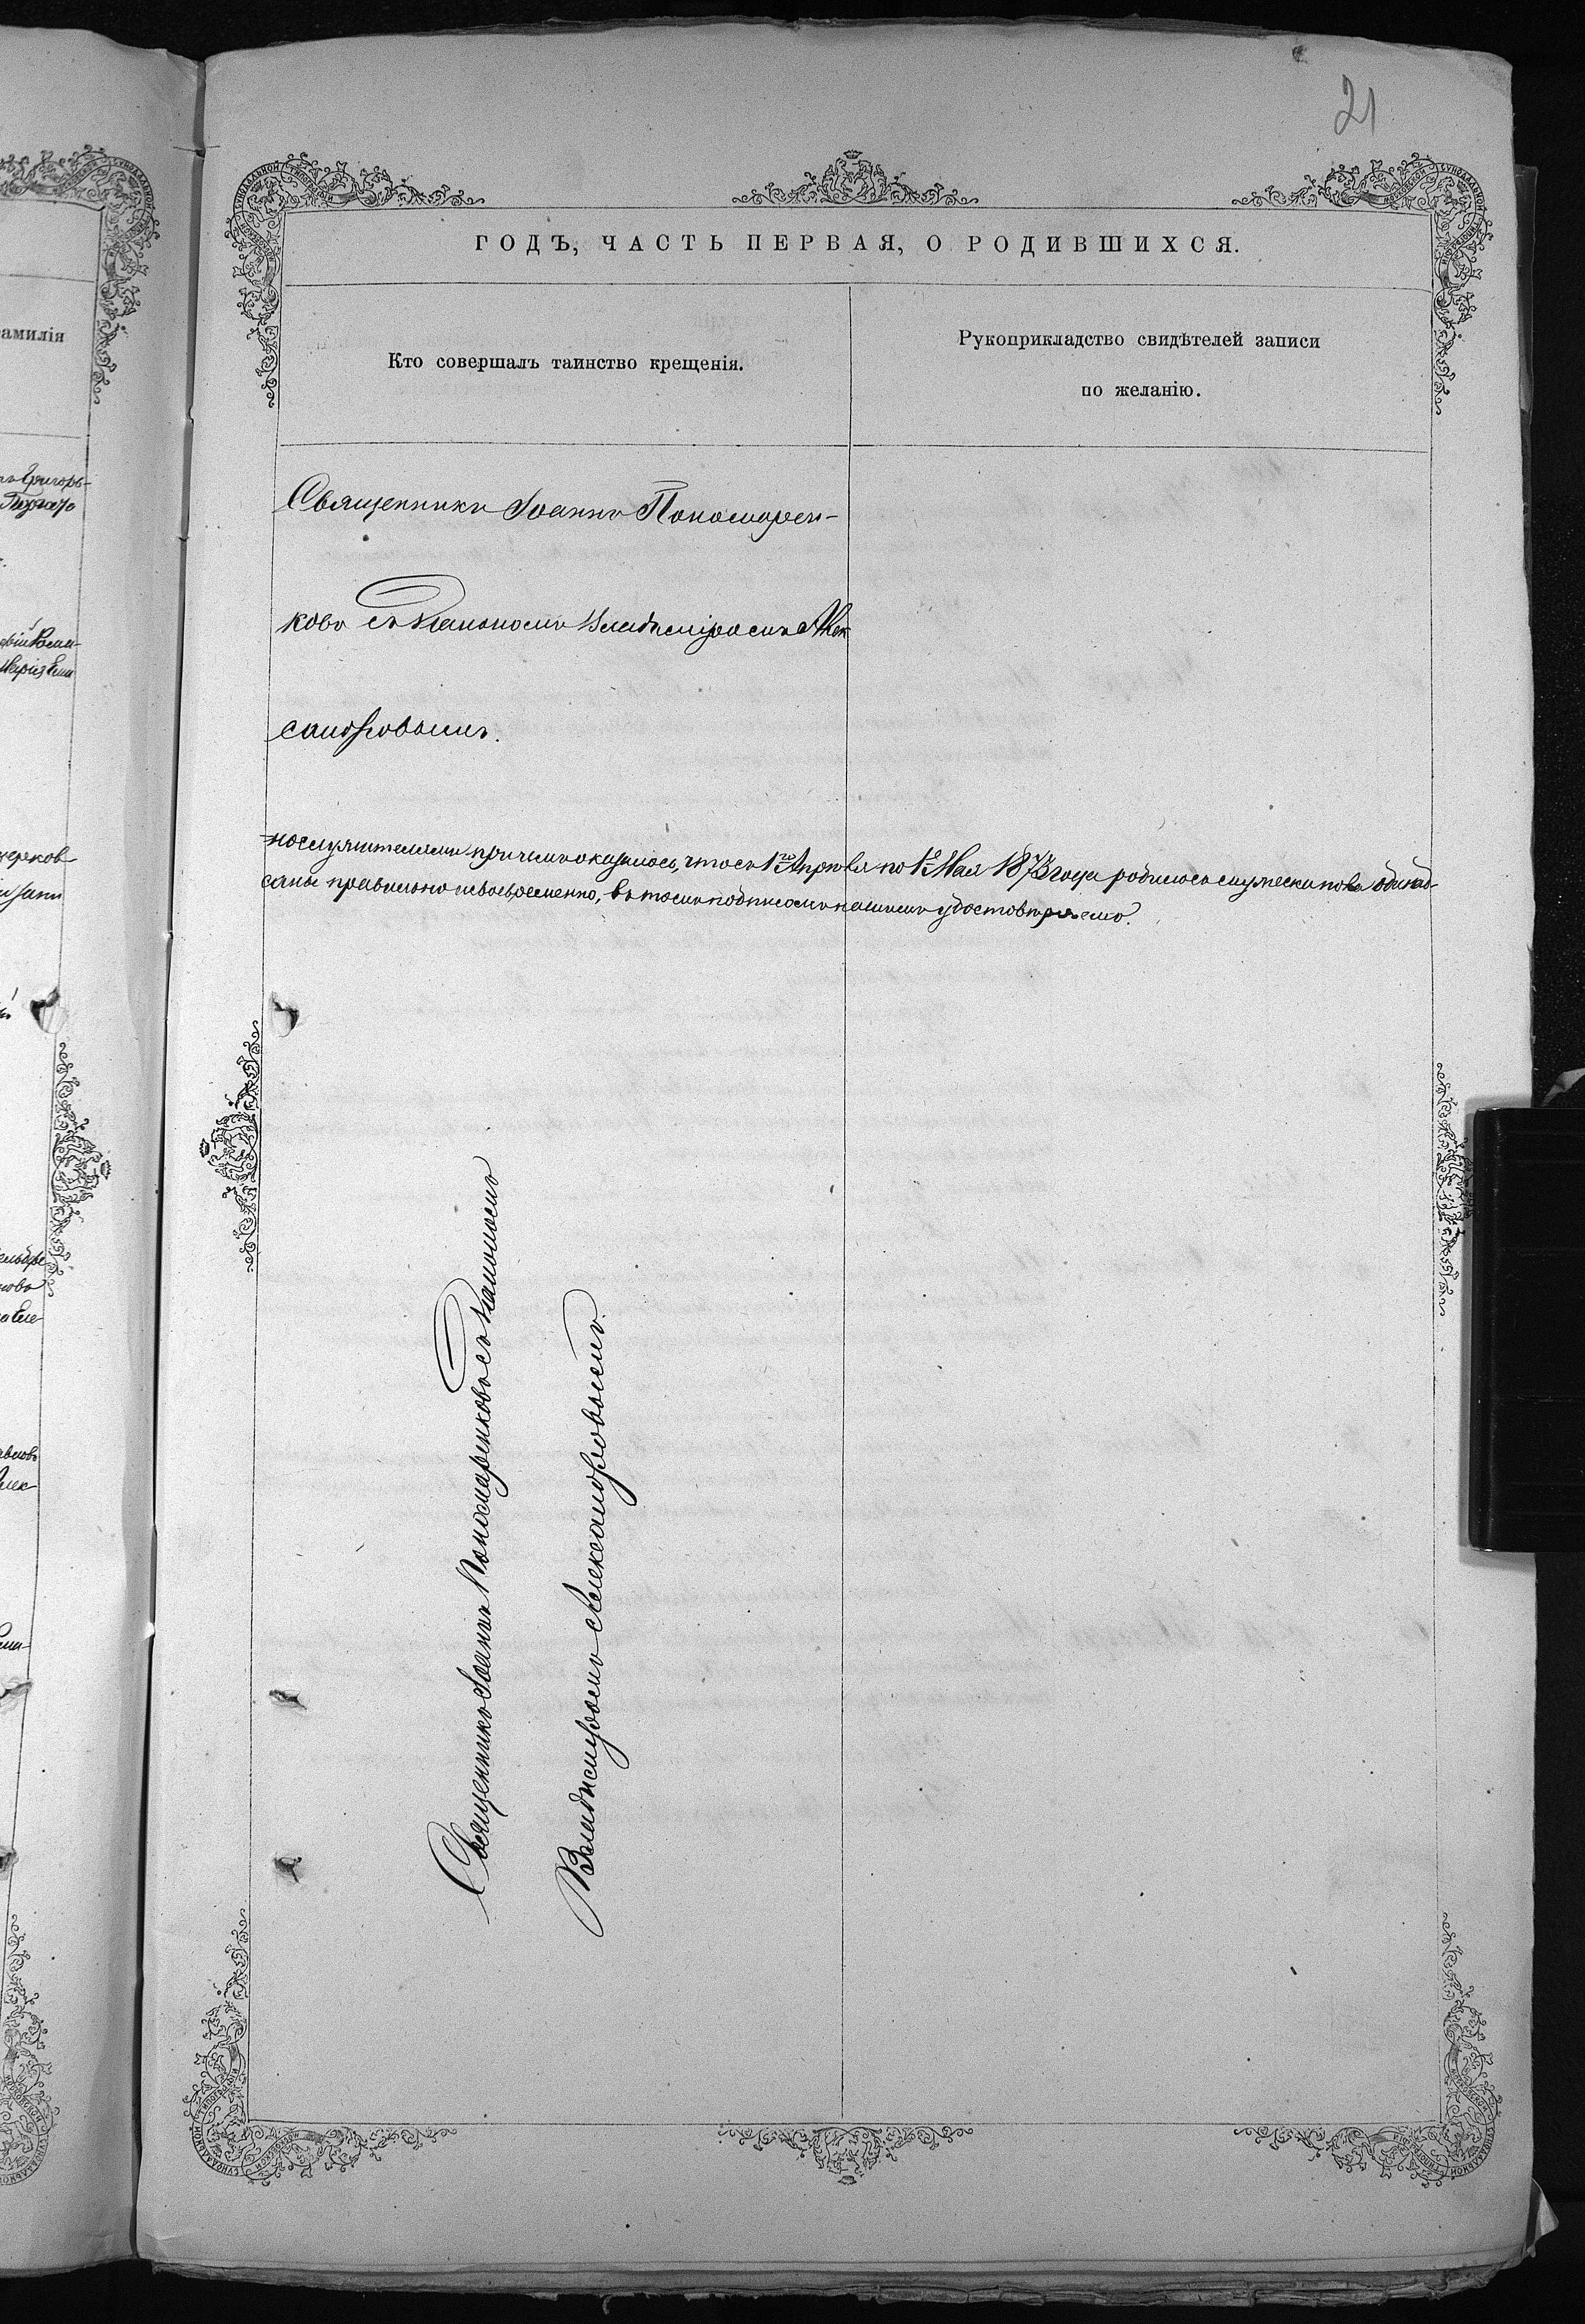 21
ГОДЪ, ЧАСТЬ ПЕРВАЯ, О РОДИВШИХСЯ.
амилія
Кто совершалъ таинство крещенія.
Рукоприкладство свидѣтелей записи
по желанію.
Священникъ Іоаннъ Пономарен-
ковъ съ Дьякономъ Владиміромъ Алек
сандровымъ.
нослужителями причемъ оказалось, что съ 1го Апрѣля по 1е Мая 1873 года родилось мужеска пола одинад-
саны правильно и своевременно, въ томъ подписомъ нашимъ удостовѣряемъ.
Священникъ Іоаннъ Пономаренковъ съ Дьякономъ
Владиміромъ Александровымъ.